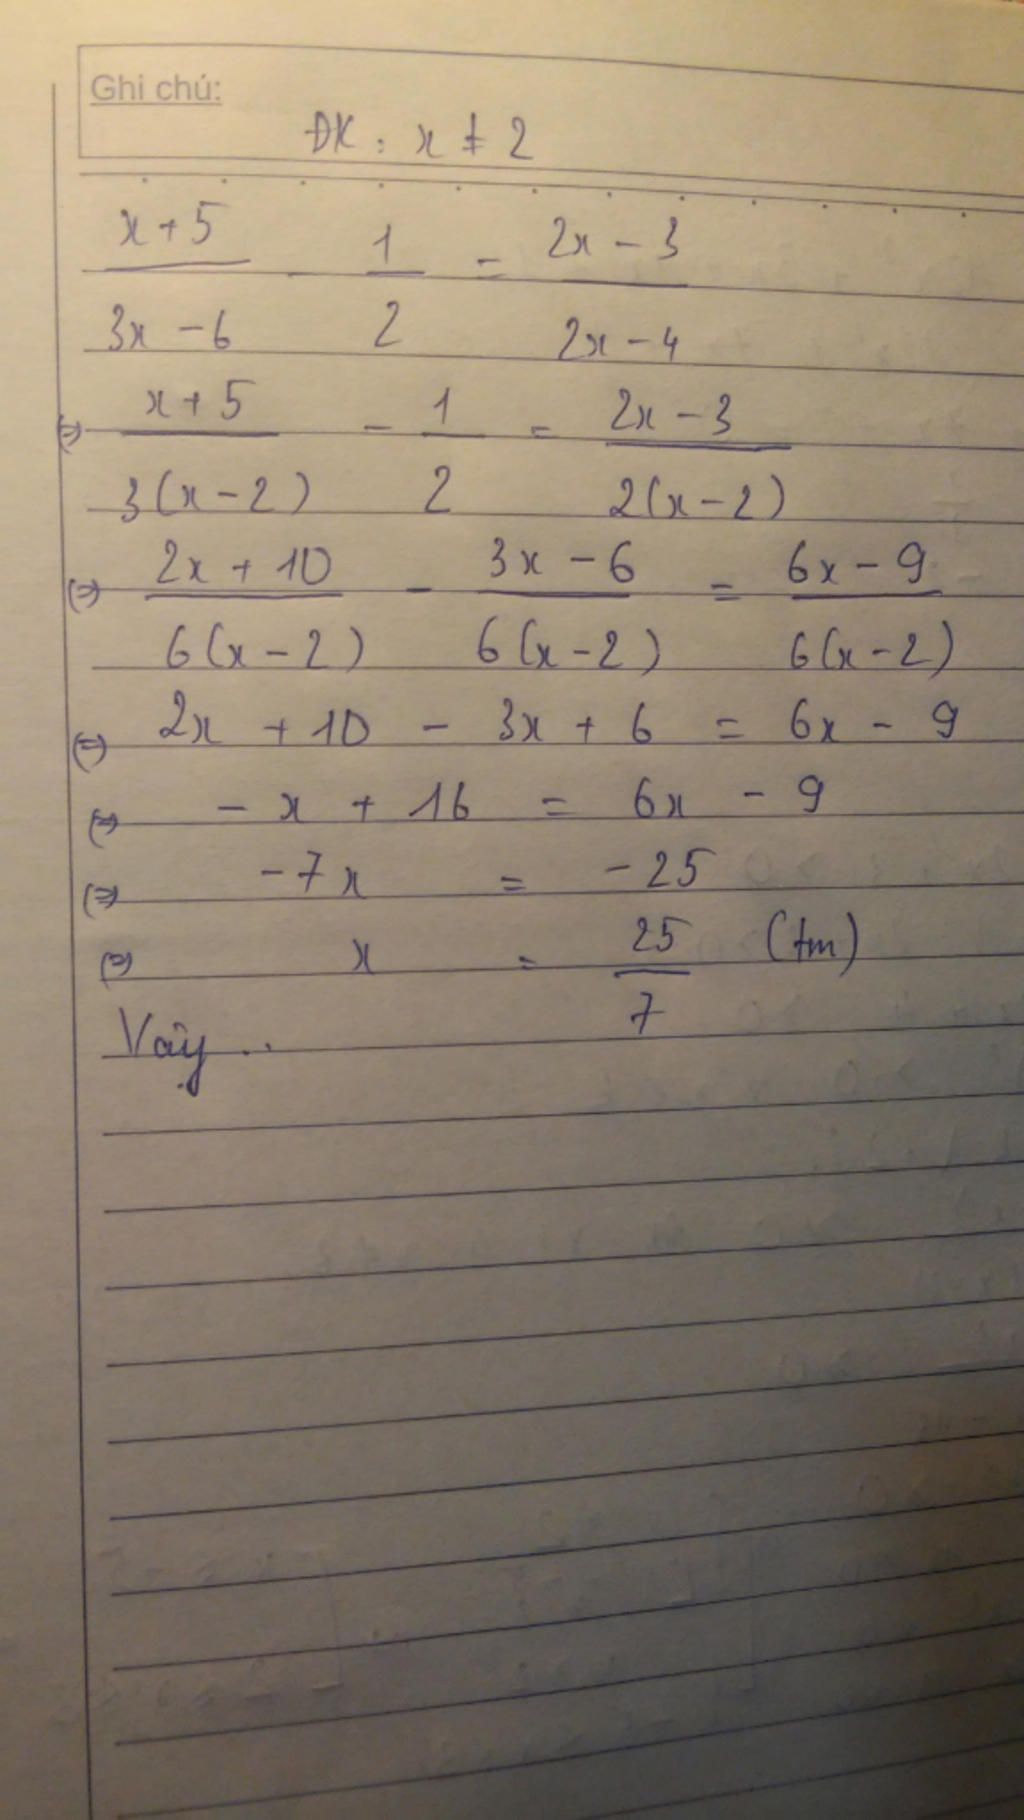 Ghi chú:
ĐK : x ≠ 2
x + 5 / 3x - 6 - 1 / 2 = 2x - 3 / 2x - 4
(=) x + 5 / 3(x - 2) - 1 / 2 = 2x - 3 / 2(x - 2)
(=) 2x + 10 / 6(x - 2) - 3x - 6 / 6(x - 2) = 6x - 9 / 6(x - 2)
(=) 2x + 10 - 3x + 6 = 6x - 9
(=) - x + 16 = 6x - 9
(=) -7x = -25
(=) x = 25 / 7 (tm)
Vậy ..